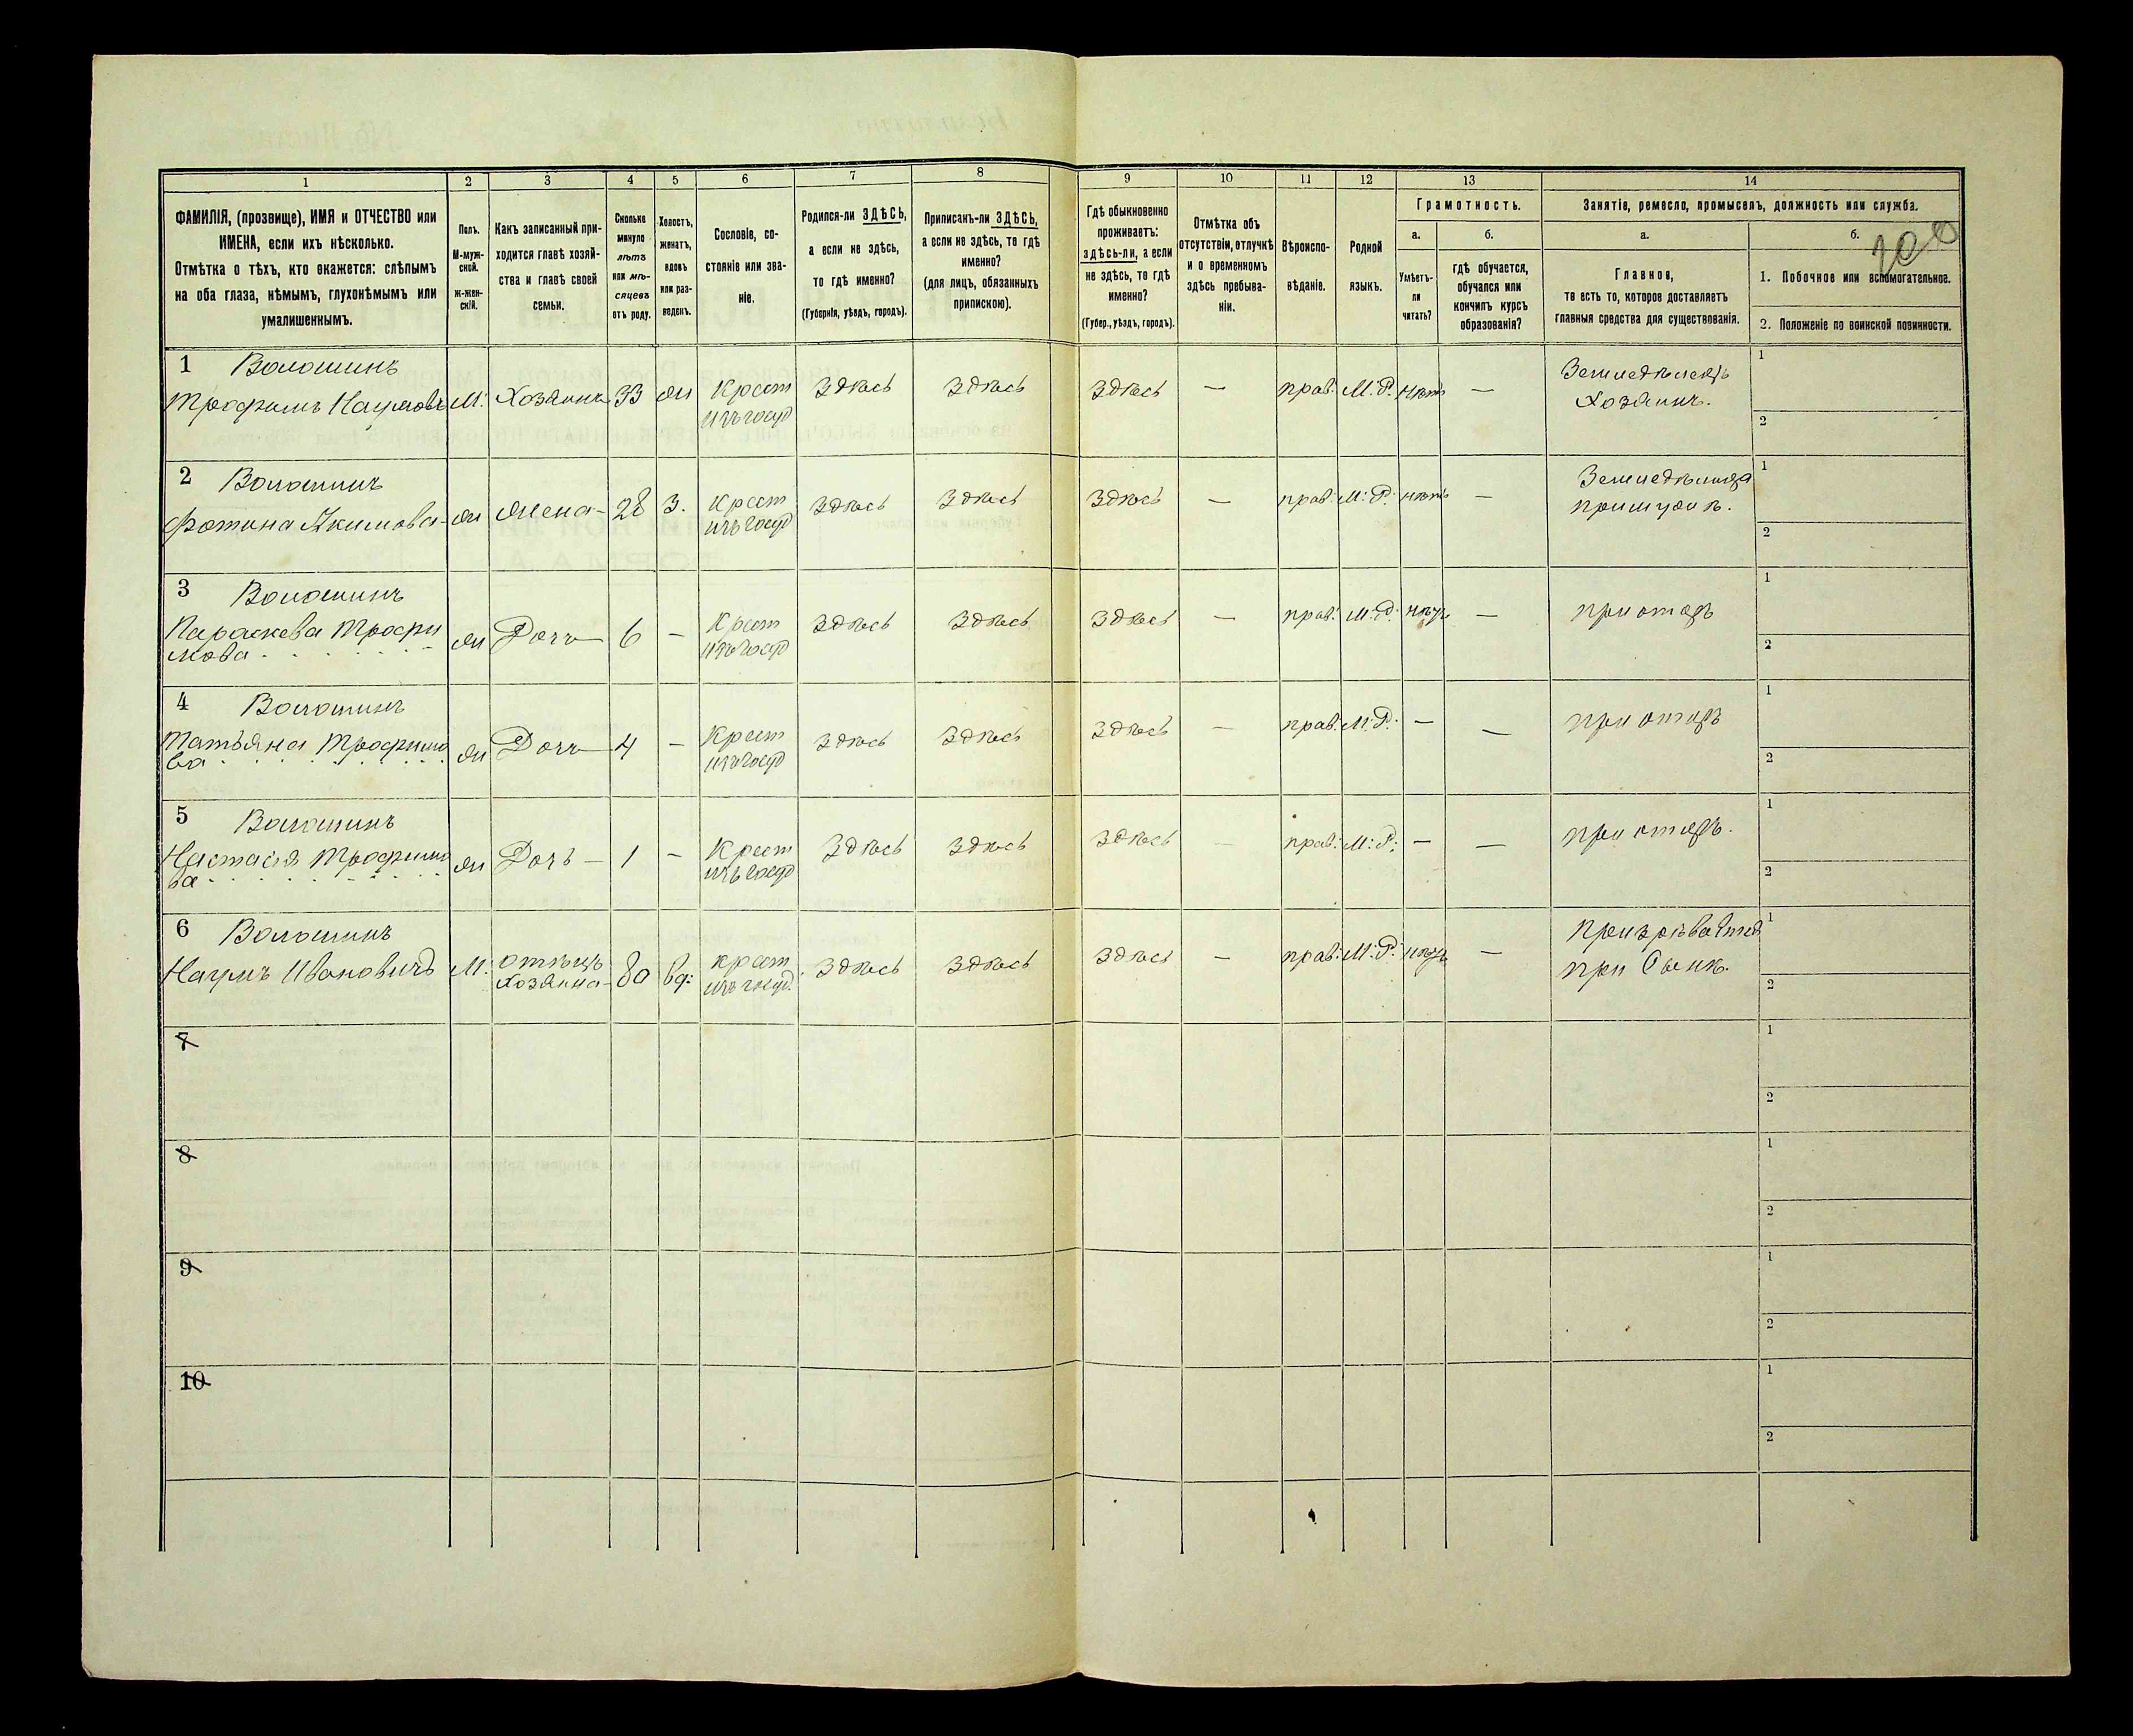 1
2
3
4
5
6
7
8
9
10
11
12
13
14
ФАМИЛІЯ, (прозвище), ИМЯ и ОТЧЕСТВО или
ИМЕНА, если ихъ нѣсколько.
Отмѣтка о тѣхъ, кто окажется: слѣпымъ
на оба глаза, нѣмымъ, глухонѣмымъ или
умалишеннымъ.
Полъ.
М-муж-
ской.
ж-жен-
скій.
Какъ записанный при-
ходится главѣ хозяй-
ства и главѣ своей
семьи.
Сколько
минуло
лѣтъ
или мѣ-
сяцевъ
отъ роду.
Холостъ,
женатъ,
вдовъ
или раз-
веденъ.
Сословіе, со-
стояніе или зва-
ніе.
Родился-ли ЗДѢСЬ,
а если не здѣсь,
то гдѣ именно?
(Губернія, уѣздъ, городъ).
Приписанъ-ли ЗДѢСЬ,
а если не здѣсь, то гдѣ
именно?
(для лицъ, обязанныхъ
припискою).
Гдѣ обыкновенно
проживаетъ:
здѣсь-ли, а если
не здѣсь, то гдѣ
именно?
(Губер., уѣздъ, городъ).
Отмѣтка объ
отсутствіи, отлучкѣ
и о временномъ
здѣсь пребыва-
ніи.
Вѣроиспо-
вѣданіе.
Родной
языкъ.
Грамотность.
а.
Умѣетъ-
ли
читать?
б.
гдѣ обучается,
обучался или
кончилъ курсъ
образованія?
Занятіе, ремесло, промыселъ, должность или служба.
а.
Главное,
то есть то, которое доставляетъ
главныя средства для существованія.
б.
200
1. Побочное или вспомогательное.
2. Положеніе по воинской повинности.
1 Волошинъ
Трофимъ Наумовъ М. Хозяинъ 33 жн Крест
изъ госуд
Здѣсь Здѣсь Здѣсь — прав. М.Р. нѣтъ —
Земледѣлецъ
Хозяинъ.
1
2
2 Волошинъ
Фотина Акимова- жн жена- 28 З. Крест
изъ госуд
Здѣсь Здѣсь Здѣсь — прав. М.Р. нѣтъ —
1
2
3 Волошинъ
Параскева Трофи
мова жн Дочь— 6 — Крест
изъ госуд
Здѣсь Здѣсь Здѣсь — прав. М.Р. нѣтъ — при отцѣ
1
2
4 Волошинъ
Татьяна Трофимо
ва жн Дочь— 4 — Крест
изъ госуд
Здѣсь Здѣсь Здѣсь — прав. М.Р. — — при отцѣ
1
2
5 Волошинъ
Настасія Трофимо
ва жн Дочь — 1 — Крест
изъ госуд
Здѣсь Здѣсь Здѣсь — прав. М.Р. — — при отцѣ.
1
2
6 Волошинъ
Наумъ Ивановичъ М. отецъ
Хозяина- 80 вд: крест
изъ госуд.
Здѣсь Здѣсь Здѣсь — прав. М.Р. нѣтъ —
при Сынѣ.
1
2
7
1
2
8
1
2
9
1
2
10
1
2